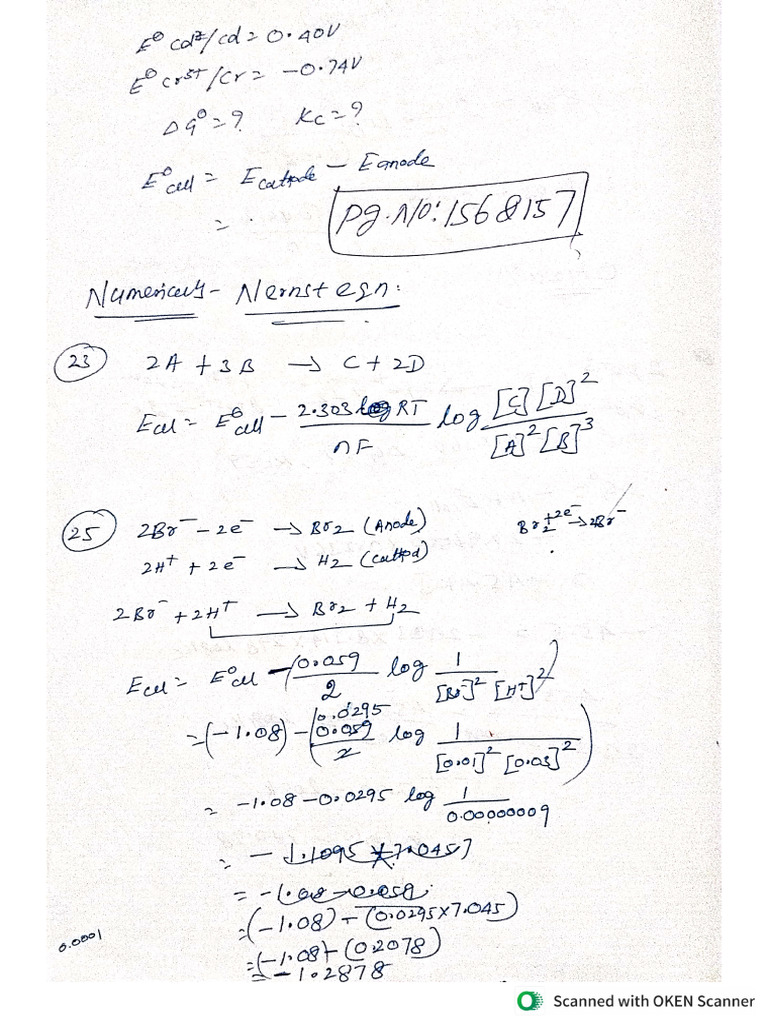 E⁰ Cd²/Cd = 0.40V
E⁰ Cr³⁺/Cr = -0.74V
ΔG⁰ = ? Kc = ?
E⁰cell = Ecathode - Eanode
=
Pg.No: 156 & 157
Numericals - Nernst eqn:
23 2A + 3B → C + 2D
Ecell = E⁰cell - 2.303 RT / nF log [C][D]² / [A]²[B]³
25 2Br⁻ - 2e⁻ → Br2 (Anode) Br2 + 2e⁻ → 2Br⁻
2H⁺ + 2e⁻ → H2 (Cathod)
2Br⁻ + 2H⁺ → Br2 + H2
Ecell = E⁰cell - (0.059 / 2 log 1 / [Br⁻]² [H⁺]²)
= (-1.08) - (0.0295 0.059 / 2 log 1 / [0.01]² [0.03]²)
= -1.08 - 0.0295 log 1 / 0.00000009
= - 1.1095 × 7.0457
= -1.08 - 0.058
= (-1.08) - (0.0295 × 7.045)
0.0001 = (-1.08) - (0.2078)
= -1.2878
Scanned with OKEN Scanner